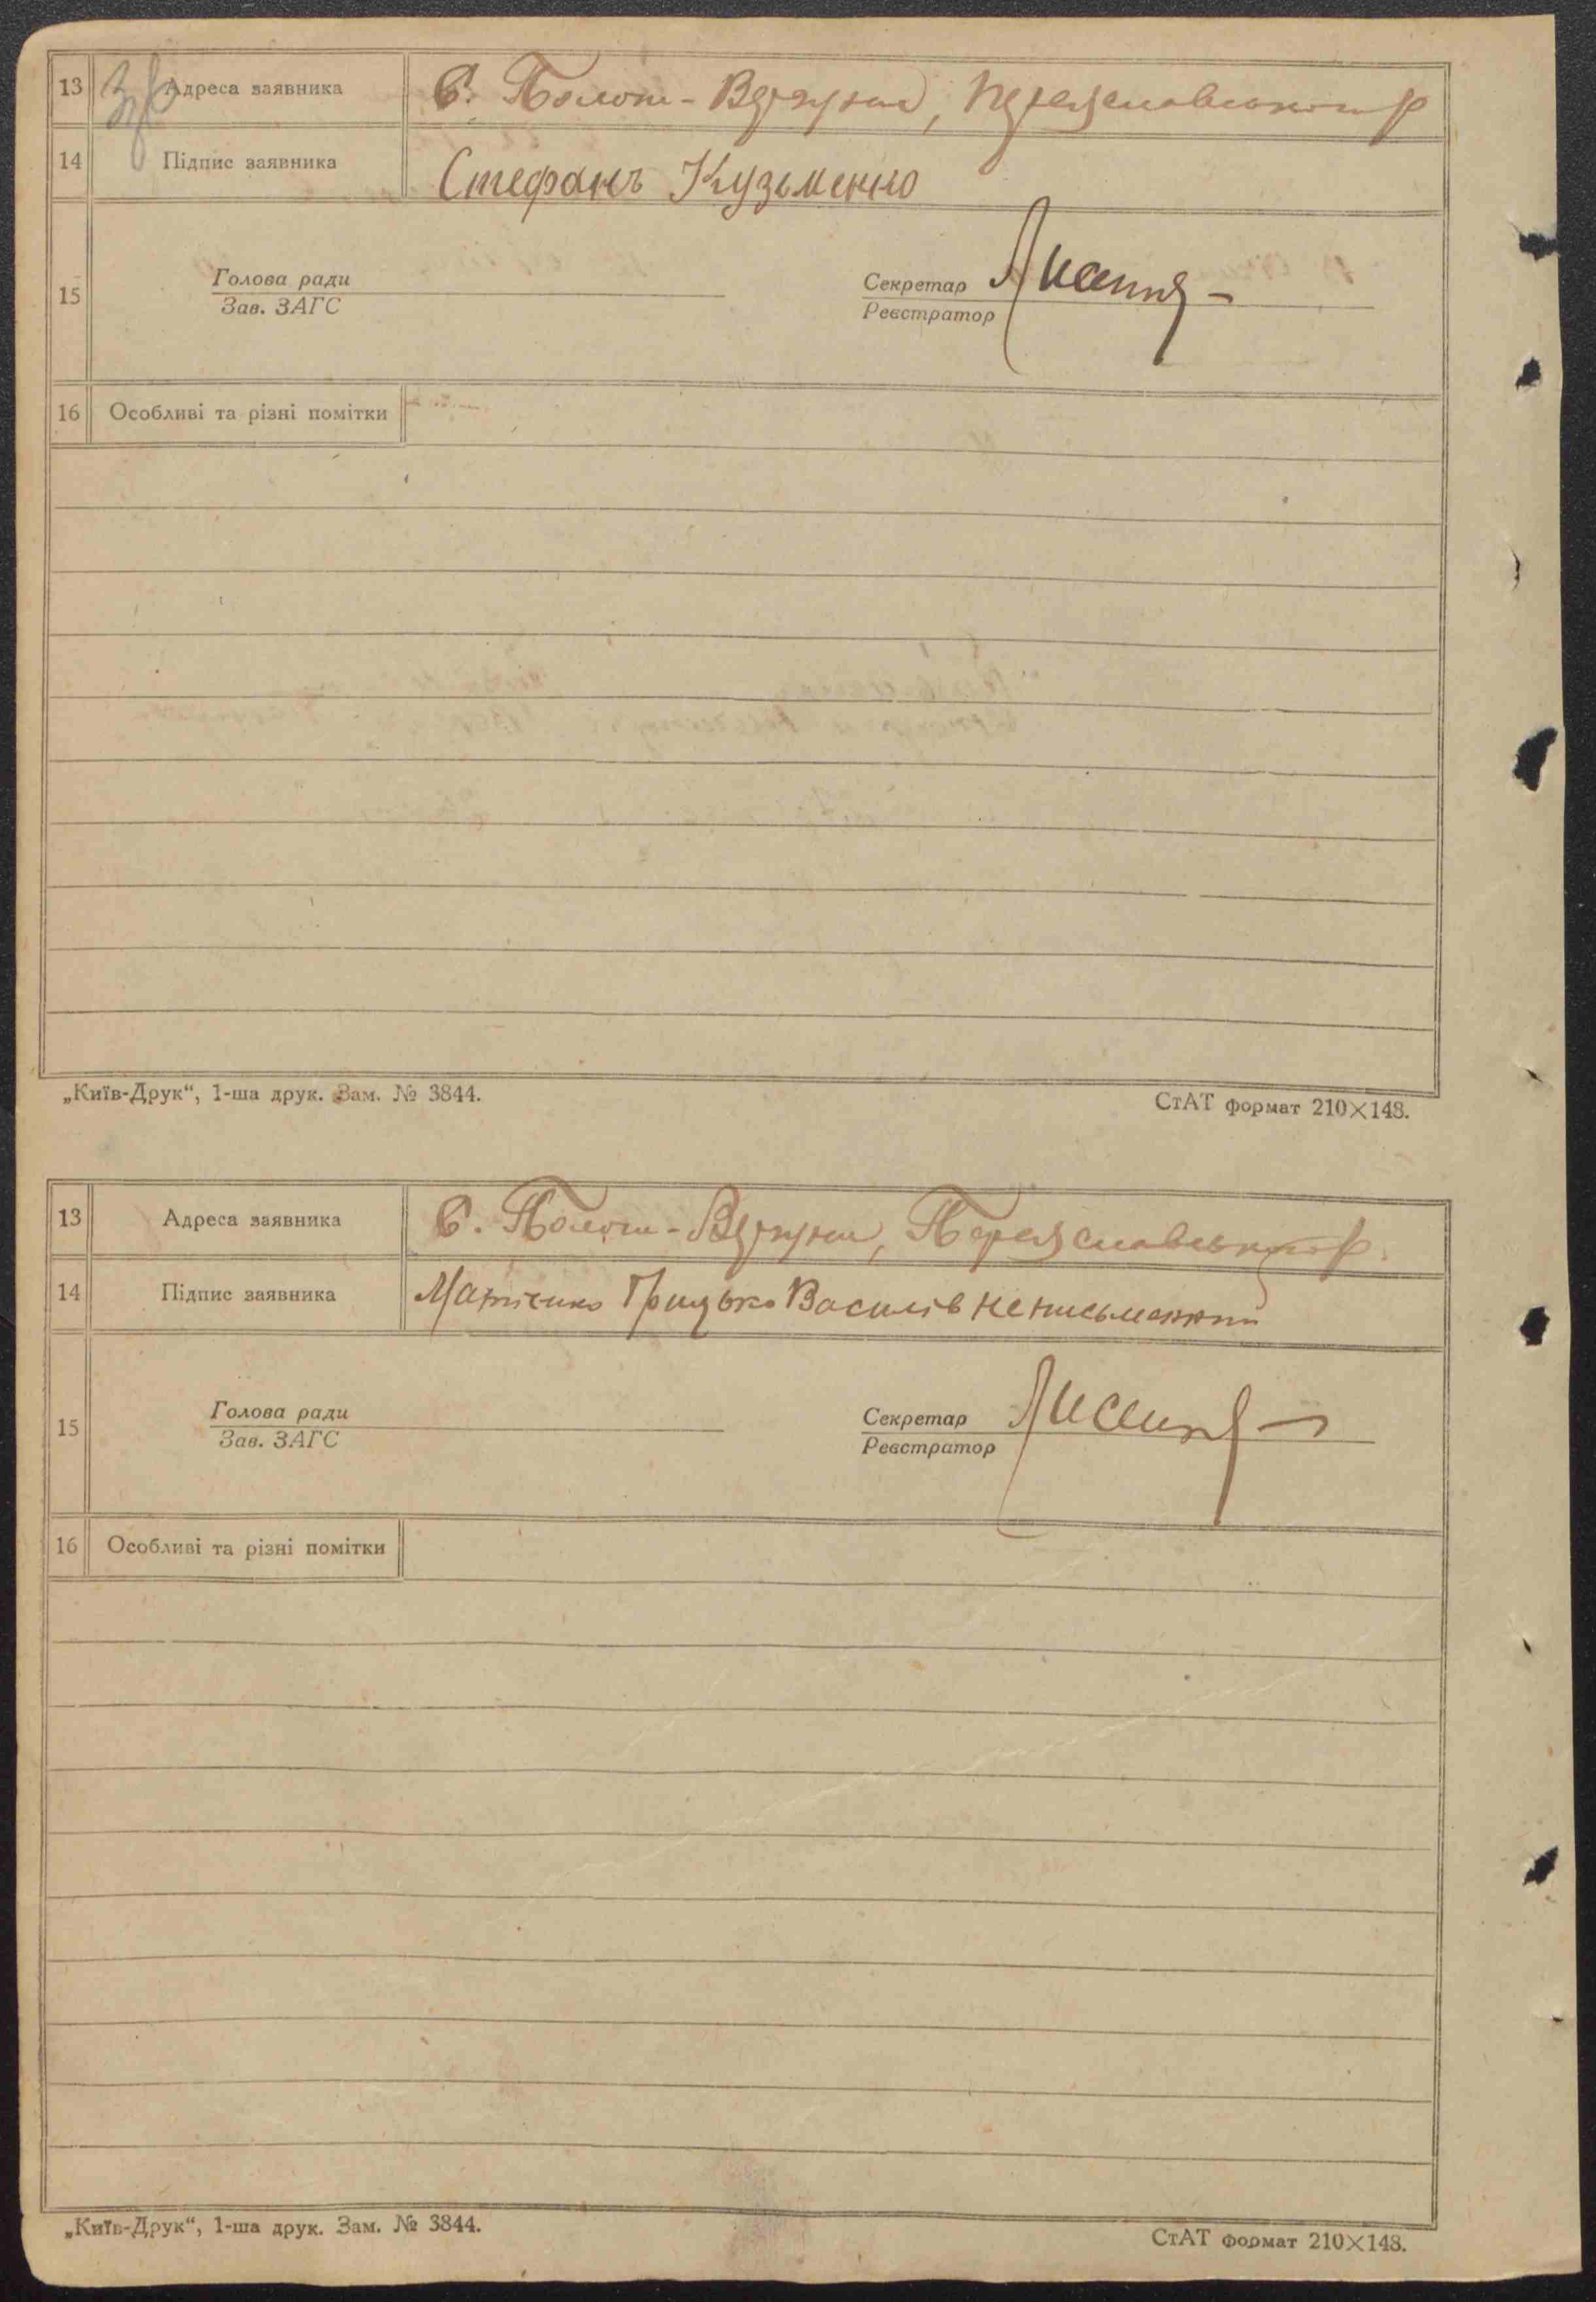 13 Адреса заявника С. Полог-Вергуни, Переяславського р
14 Підпис заявника Стефанъ Кузьменко
15 Голова ради Секретар
Зав. ЗАГС Реєстратор
16 Особливі та різні помітки
„Київ-Друк“, 1-ша друк. Зам. № 3844. СтАТ формат 210×148.
13 Адреса заявника С. Полог-Вергуни, Переяславського р.
14 Підпис заявника Грицько Василів неписьменний
15 Голова ради Секретар
Зав. ЗАГС Реєстратор
16 Особливі та різні помітки
„Київ-Друк“, 1-ша друк. Зам. № 3844. СтАТ формат 210×148.